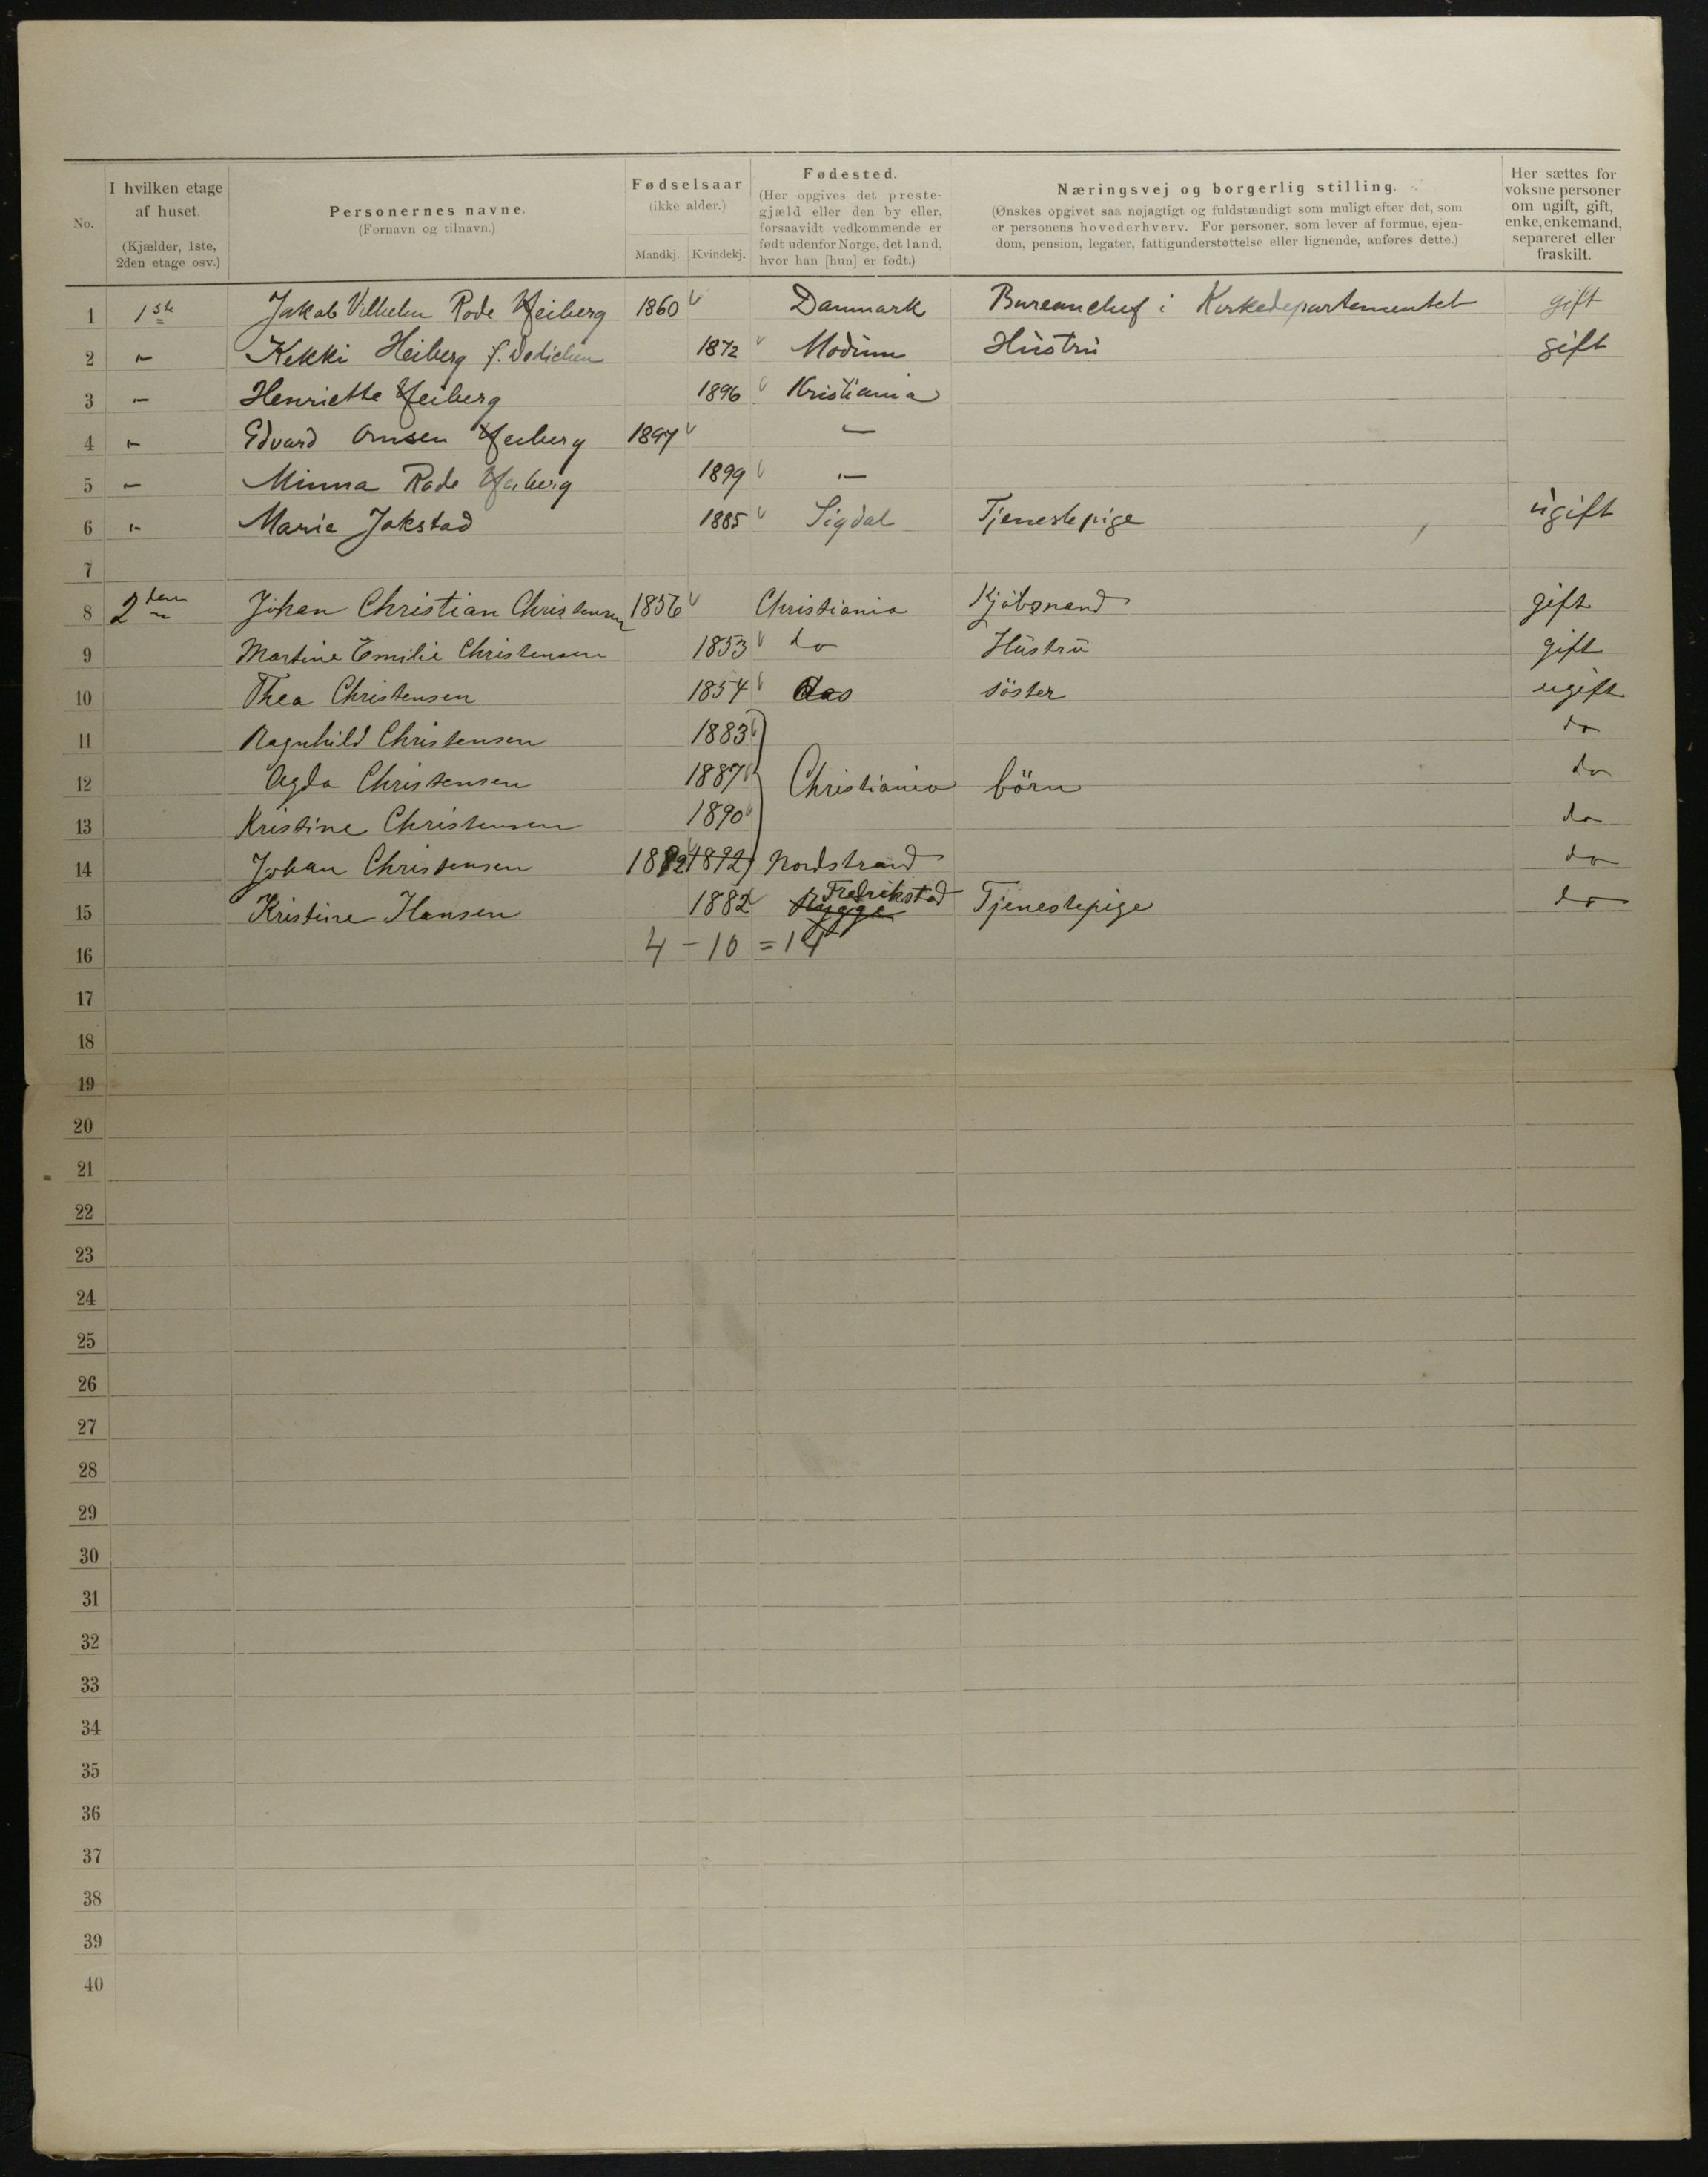 No.
I hvilken etage af huset. (Kjælder, 1ste, 2den etage osv.)
Personernes navne. (Fornavn og tilnavn.)
Fødselsaar (ikke alder.) Mandkj. Kvindekj.
Fødested. (Her opgives det prestegjæld eller den by eller, forsaavidt vedkommende er født udenfor Norge, det land, hvor han [hun] er født.)
Næringsvej og borgerlig stilling. (Ønskes opgivet saa nøjagtigt og fuldstændigt som muligt efter det, som er personens hovederhverv. For personer, som lever af formue, ejendom, pension, legater, fattigunderstøttelse eller lignende, anføres dette.)
Her sættes for voksne personer om ugift, gift, enke, enkemand, separeret eller fraskilt.
1 1ste Jakob Vilhelm Rode Heiberg 1860 Danmark Bureauchef i Kirkedepartementet gift
2 — Kekki Heiberg f. Dedichen 1872 Modum Hustru gift
3 — Henriette Heiberg 1896 Kristiania
4 — Edvard Omsen Heiberg 1897 —
5 — Minna Rode Heiberg 1899 —
6 — Marie Jokstad 1885 Sigdal Tjenestepige ugift
7
8 2den Johan Christian Christensen 1856 Christiania Kjöbmand gift
9 Martine Emilie Christensen 1853 do Hustru gift
10 Thea Christensen 1854 söster ugift
11 Ragnhild Christensen 1883 do
12 Agda Christensen 1887 Christiania börn do
13 Kristine Christensen 1890 do
14 Johan Christensen 1892 1892 Nordstrand do
15 Kristine Hansen 1882 Rygge Fredrikstad Tjenestepige do
16 4 - 10 = 14
17
18
19
20
21
22
23
24
25
26
27
28
29
30
31
32
33
34
35
36
37
38
39
40